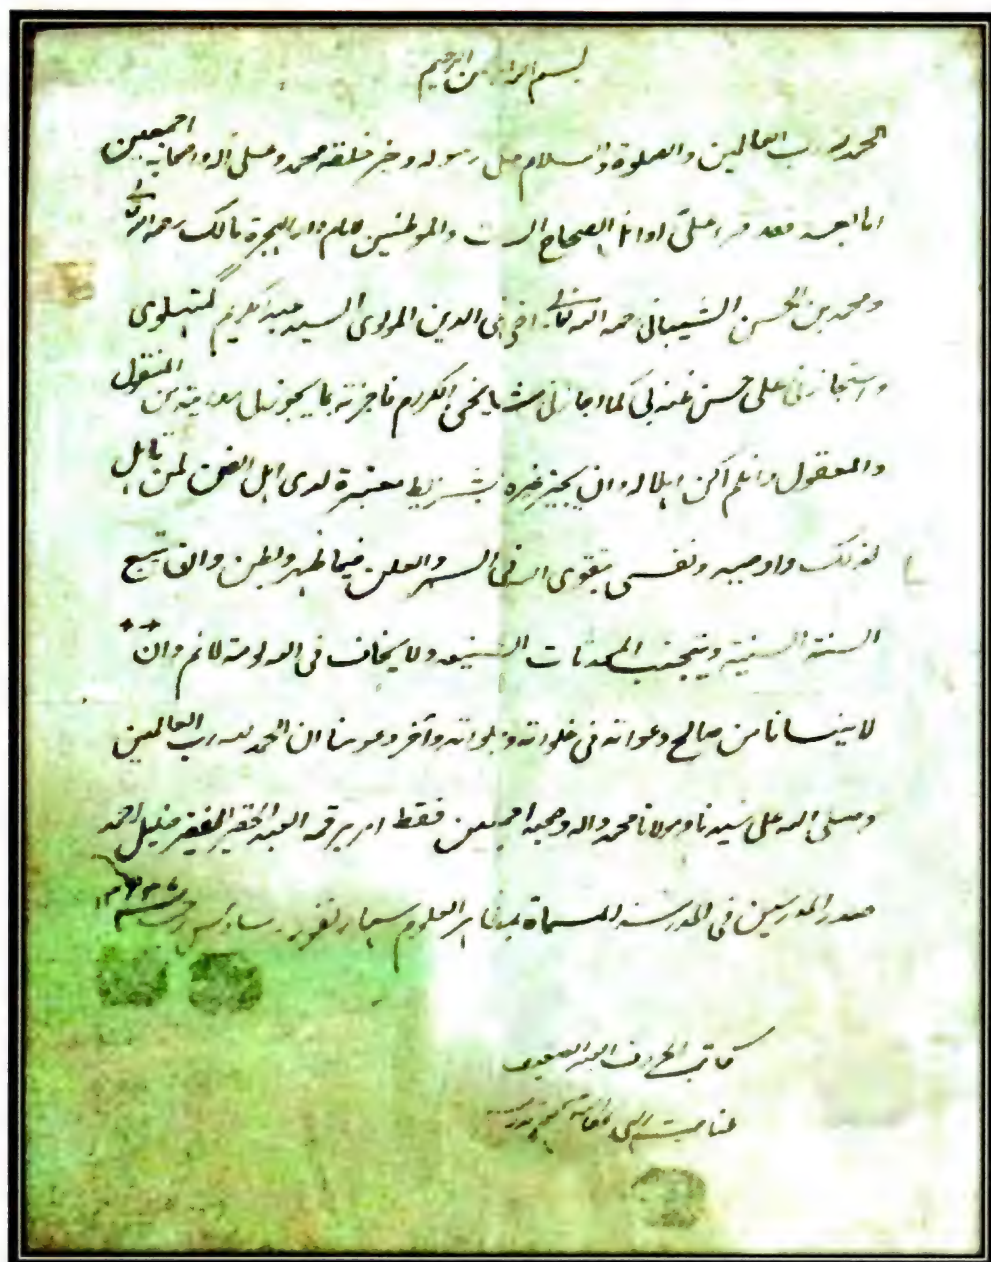 بسم الله الرحمن الرحيم
الحمد لله رب العالمين والصلوة والسلام على رسوله وخير خلقه محمد وعلى اله واصحابه اجمعين
اما بعد فقد قرأ على اوائل الصحاح الست والموطئين لامام دار الهجرة مالك رحمه الله تعالى
ومحمد بن الحسن الشيبانى رحمه الله تعالى اخى فى الدين المولوى السيد عبد الكريم گمتهلوى
واستجازنى على حسن ظنه بى كما اجازنى مشايخى الكرام فاجزته بما يجوز لى روايته من المنقول
والمعقول وان لم اكن اهلا له وان يجيز غيره بشرايط معتبرة لدى اهل الفن لمن تاهل
لذلك واوصيه ونفسى بتقوى الله فى السر والعلن فيما ظهر وبطن وان يتبع
السنة السنية ويتجنب المحدثات الشنيعة ولا يخاف فى الله لومة لائم وان
لا ينسانا من صالح دعواته فى خلواته وجلواته وآخر دعوانا ان الحمد لله رب العالمين
وصلى الله على سيدنا ومولانا محمد واله وصحبه اجمعين فقط امر برقمه العبد الحقير الفقير خليل احمد
صدر المدرسين فى المدرسة المسماة بمظاهر العلوم سهارنفور
كاتب الحروف العبد
عنايت الهى